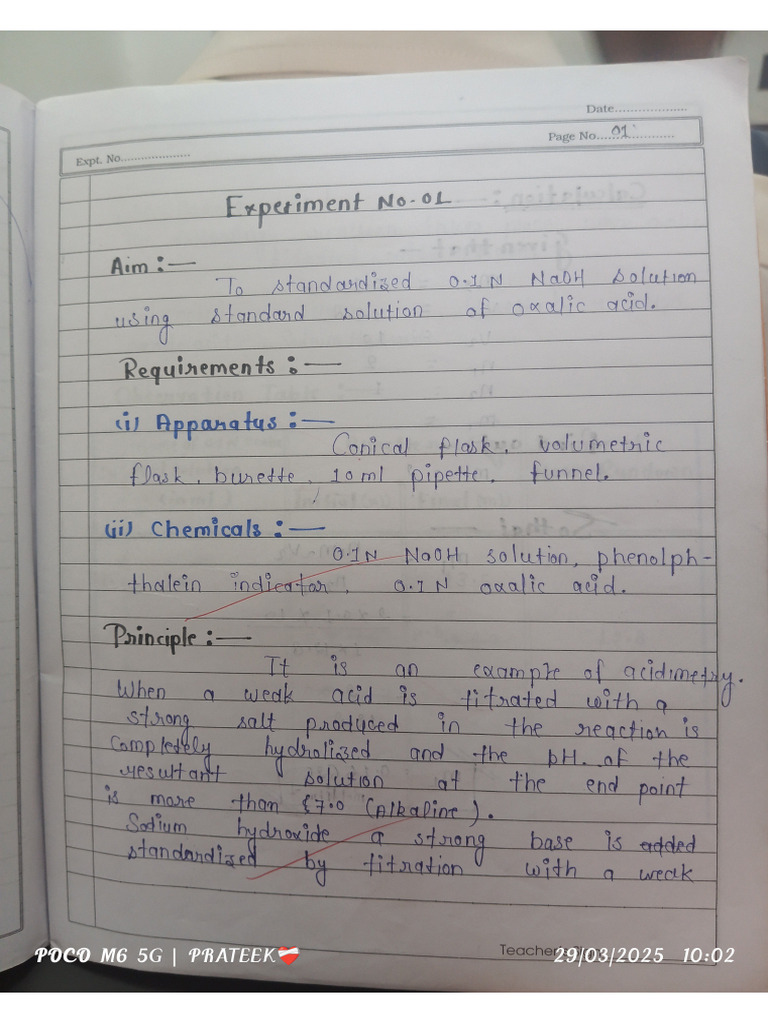 Date...................
Page No.....01...............
Expt. No...................
Experiment No-01
Aim :—
To standardized 0.1N NaOH solution
using standard solution of oxalic acid.
Requirements :—
(i) Apparatus :—
Conical flask, volumetric
flask, burette, 10ml pipette, funnel.
(ii) Chemicals :—
0.1N NaOH solution, phenolph-
thalein indicator, 0.1N oxalic acid.
Principle :—
It is an example of acidimetry.
When a weak acid is titrated with a
strong salt produced in the reaction is
Completely hydrolized and the pH. of the
resultant solution at the end point
is more than 7.0 (Alkaline).
Sodium hydroxide a strong base is added
standardized by titration with a weak
Teacher's Sign
POCO M6 5G | PRATEEK❤️‍🩹
29/03/2025 10:02